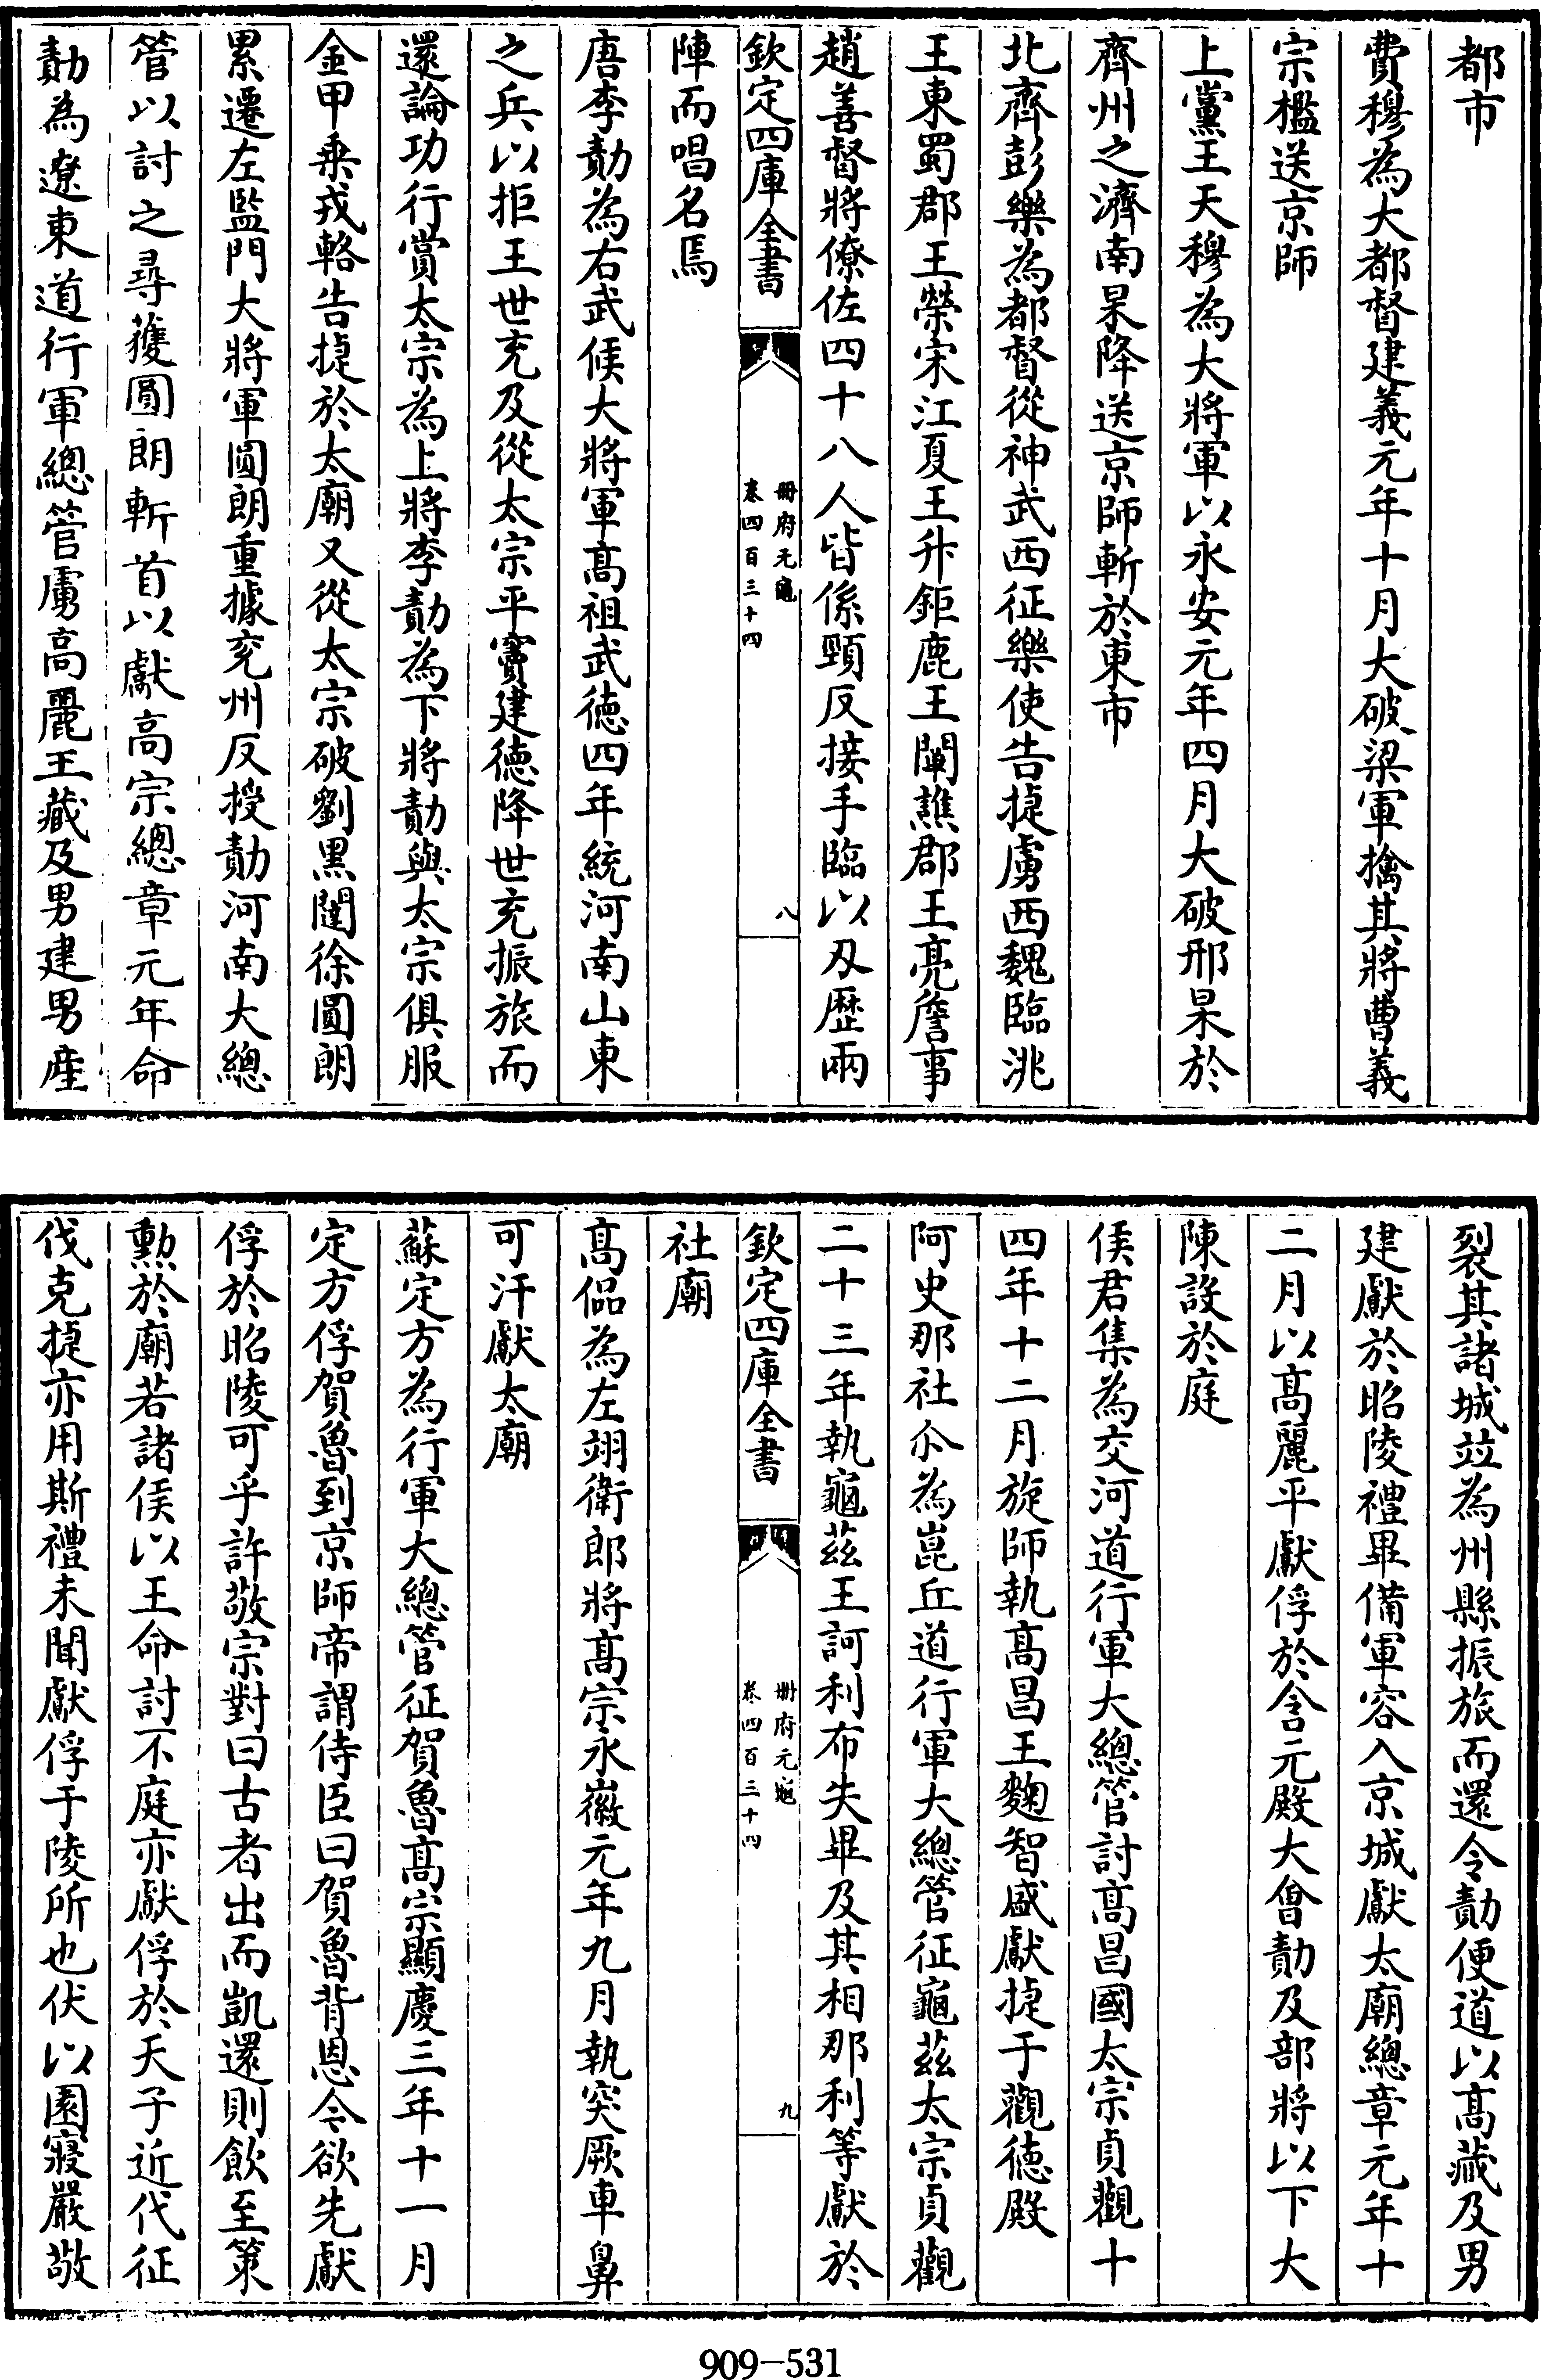 都市
費穆為大都督建義元年十月大破梁軍擒其將曹義
宗檻送京師
上黨王天穆為大將軍以永安元年四月大破邢杲於
齊州之濟南杲降送京師斬於東市
北齊彭樂為都督從神武西征樂使告捷虜西魏臨洮
王東蜀郡王榮宋江夏王升鉅鹿王闡譙郡王亮詹事
趙善督將僚佐四十八人皆係頸反接手臨以刃歷兩
欽定四庫全書
冊府元龜
卷四百三十四
八
陣而唱名焉
唐李勣為右武候大將軍髙祖武徳四年統河南山東
之兵以拒王世充及從太宗平竇建徳降世充振旅而
還論功行賞太宗為上將李勣為下將勣與太宗俱服
金甲乗戎輅告捷於太廟又從太宗破劉黒闥徐圓朗
累遷左監門大將軍圓朗重據兖州反授勣河南大總
管以討之尋獲圓朗斬首以獻高宗總章元年命
勣為遼東道行軍總管虜高麗王藏及男建男產
裂其諸城竝為州縣振旅而還令勣便道以髙藏及男
建獻於昭陵禮畢備軍容入京城獻太廟總章元年十
二月以髙麗平獻俘於含元殿大會勣及部將以下大
陳設於庭
侯君集為交河道行軍大總管討髙昌國太宗貞觀十
四年十二月旋師執髙昌王麴智盛獻捷于觀徳殿
阿史那社尒為崑丘道行軍大總管征龜茲太宗貞觀
二十三年執龜茲王訶利布失畢及其相那利等獻於
欽定四庫全書
冊府元龜
卷四百三十四
九
社廟
髙偘為左翊衛郎將髙宗永徽元年九月執突厥車鼻
可汗獻太廟
蘇定方為行軍大總管征賀魯髙宗顯慶三年十一月
定方俘賀魯到京師帝謂侍臣曰賀魯背恩今欲先獻
俘於昭陵可乎許敬宗對曰古者出而凱還則飲至策
勲於廟若諸侯以王命討不庭亦獻俘於天子近代征
伐克捷亦用斯禮未聞獻俘于陵所也伏以園寢嚴敬
909-531